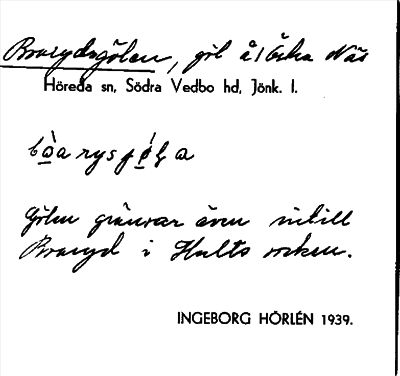 Boarydsgölen, göl å 1 Östra Näs
Höreda sn, Södra Vedbo hd, Jönk. l.
Gölen gränsar även intill
Boaryd i Hults socken.
INGEBORG HÖRLÉN 1939.